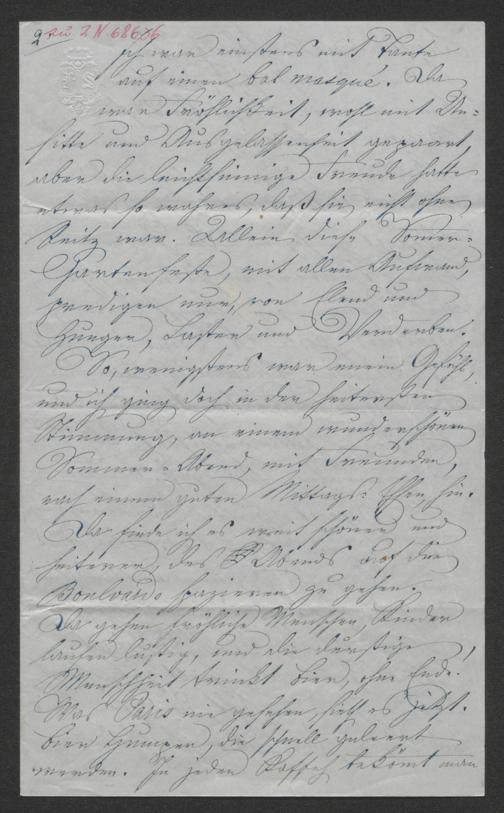 2 zu 2 N 68676
Ich war einstens mit Tante
auf einem bal masqué. Da
war Fröhlichkeit, wohl mit Un-
sitte und Ausgelassenheit gepaart,
aber die leichtsinnige Freude hatte
etwas so wahres, daß sie nicht ohne
Reitz war. Allein diese Somer-
Gartenfeste, mit allen Aufwand,
predigen nur, von Elend und
Hunger, Laster und Verderben.
So, wenigstens war mein Gefühl,
und ich ging doch in der heitersten
Stimmung, an einem wunderschönen
Sommer-Abend, mit Freunden,
nach einem guten Mittags-Essen, hin.
Da finde ich es weit schöner, und
heiterer, des Abends auf die
Boulvards spazieren zu gehen.
Da gehen fröhliche Menschen, Kinder
laufen lustig, und die durstige
Menschheit trinkt Bier, ohne Ende.
Was Paris nie gesehen, sieht es jetzt.
Bier Humpen, die schnell geleert
werden. In jeden Kaffeh bekömt man